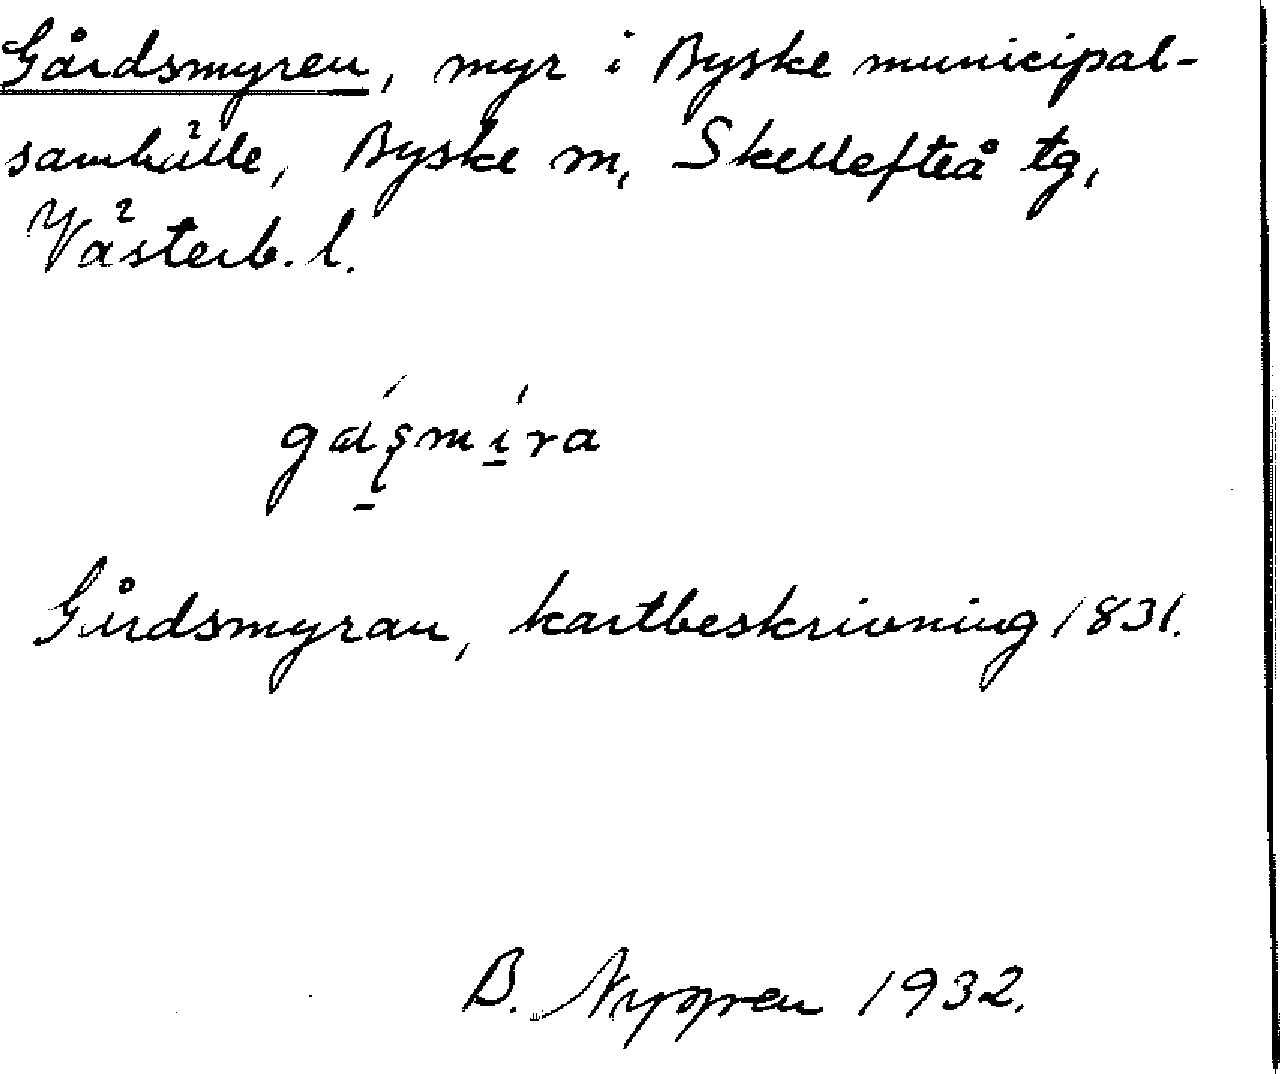 Gårdsmyren, myr i Byske municipal-
samhälle, Byske sn, Skellefteå tg,
Västerb. l.
Gårdsmyran, kartbeskrivning 1831.
B. Nygren 1932.